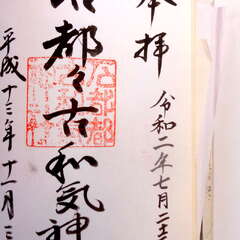 奉拝
令和二年七月二十
石都々古和気神
平成十三年十一月